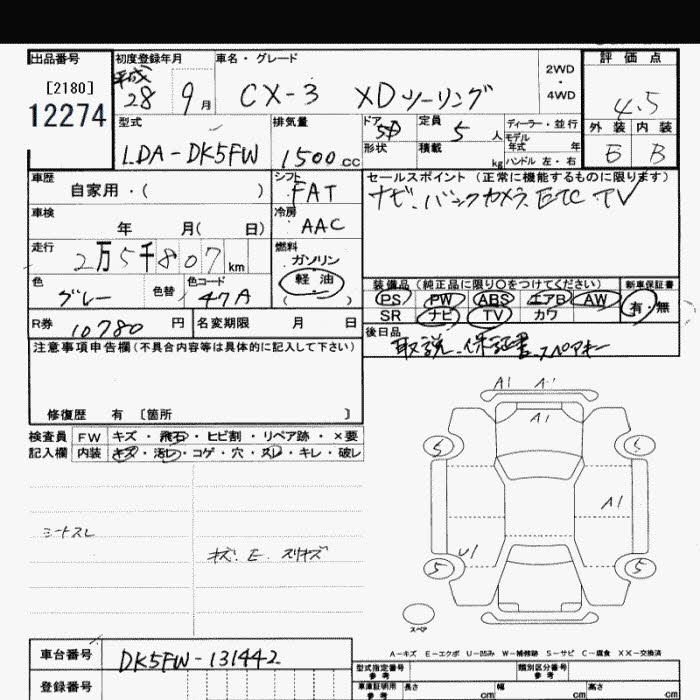 出品番号 初度登録年月 車名・グレード 評価点
[2180] 平成 2WD
12274 28 9月 CX-3 XDツーリング ・ 4.5
4WD
型式 排気量 ドア 5D 定員 5人 ディーラー・並行 外装 内装
モデル年式 年
LDA-DK5FW 1500cc 形状 積載 kg ハンドル 左・右 B
車歴 シフト セールスポイント (正常に機能するものに限ります)
自家用・( ) FAT ナビ.バックカメラ ETC TV
車検 冷房
年 月( 日) AAC
走行 燃料
2万5千807km ガソリン
軽油
( )
色 色替 色コード 装備品(純正品に限り○をつけてください) 新車保証書
グレー 47A PS PW ABS エアB AW 有・無
SR ナビ TV カワ
R券 10780円 名変期限 月 日 後日品
取説.保証書.スペアキー
注意事項申告欄(不具合内容等は具体的に記入して下さい)
修復歴 有 〔箇所 〕
検査員 FW キズ・飛石・ヒビ割・リペア跡・×要
記入欄 内装 キズ・汚レ・コゲ・穴・スレ・キレ・破レ
シートスレ
キズ.E.スリキズ
A1 A1
A1
5 5
A1
U1
5 5
スペア
A-キズ E-エクボ U-凹み W-補修跡 S-サビ C-腐食 XX-交換済
車台番号 DK5FW-131442
型式指定番号 参考 類別区分番号 参考
登録番号 車庫証明用 参考 長さ cm 幅 cm 高さ cm